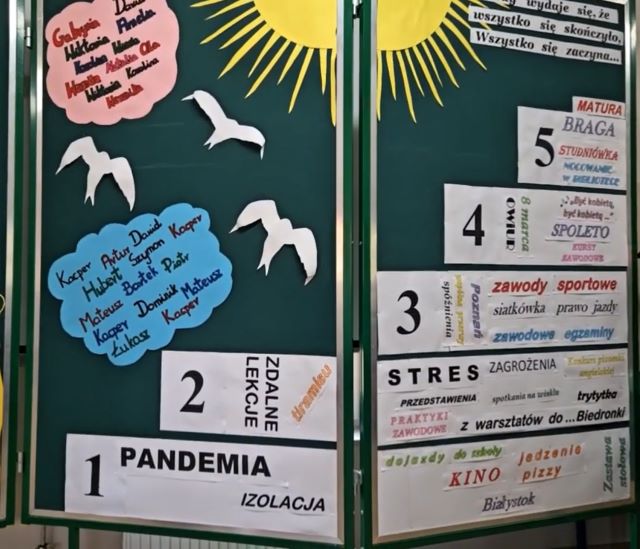 Gabrysia Dawid
Wiktoria Amelia
Karolina
Natalia Ola
Wiktoria Karolina
Weronika
Kacper Artur Dawid
Hubert Szymon Kacper
Mateusz Bartek Piotr
Kacper Dominik Mateusz
Łukasz Kacper
2
ZDALNE
LEKCJE
tiramisu
1
PANDEMIA
IZOLACJA
wydaje się, że
wszystko się skończyło.
Wszystko się zaczyna...
MATURA
5
BRAGA
STUDNIÓWKA
NOCOWANIE
W BIBLIOTECE
4
8 marca
„Być kobietą,
być kobietą ..."
SPOLETO
KURSY
ZAWODOWE
3
spóźnienia
Poznań
zawody sportowe
siatkówka prawo jazdy
zawodowe egzaminy
STRES ZAGROŻENIA
Konkurs piosenki
angielskiej
PRZEDSTAWIENIA
spotkania na winklu
trytytka
PRAKTYKI
ZAWODOWE
z warsztatów do ... Biedronki
dojazdy do szkoły
jedzenie
pizzy
KINO
Białystok
Zastawa
stołowa